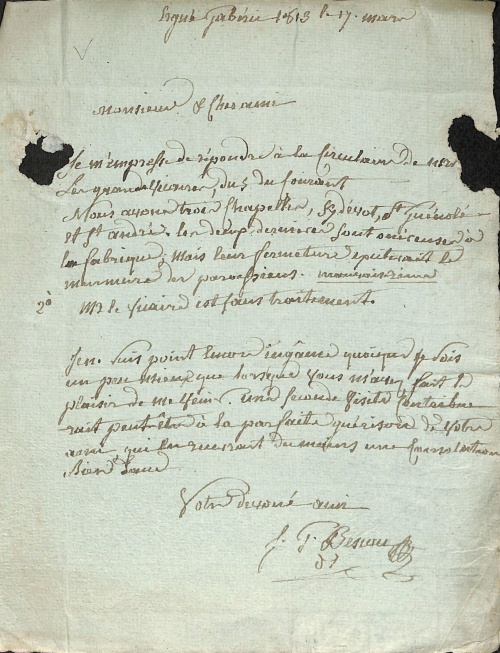 Ergué Gabéric 1813 le 17 mars
Monsieur & Cher ami
Je m'empresse de répondre à la Circulaire de
Les grands Vicaires du 5 du Courant
Nous avons trois Chapelles, Kdévot, St Guénolé
et St andré. les deux dernières sont onéreuses à
la fabrique; mais leur fermeture le
murmure des paroissiens.
2°. Mr le Vicaire est sans traitement.
Je n. suis point Encore ingambe quoique je sois
un peu mieux que lorsque vous m'avez fait le
plaisir de me voir. une seconde Visite Contribue
rait peut être à la parfaite guérison de Votre
ami, qui En recevrait du moins une Consolation
Bien
Votre dévoué ami